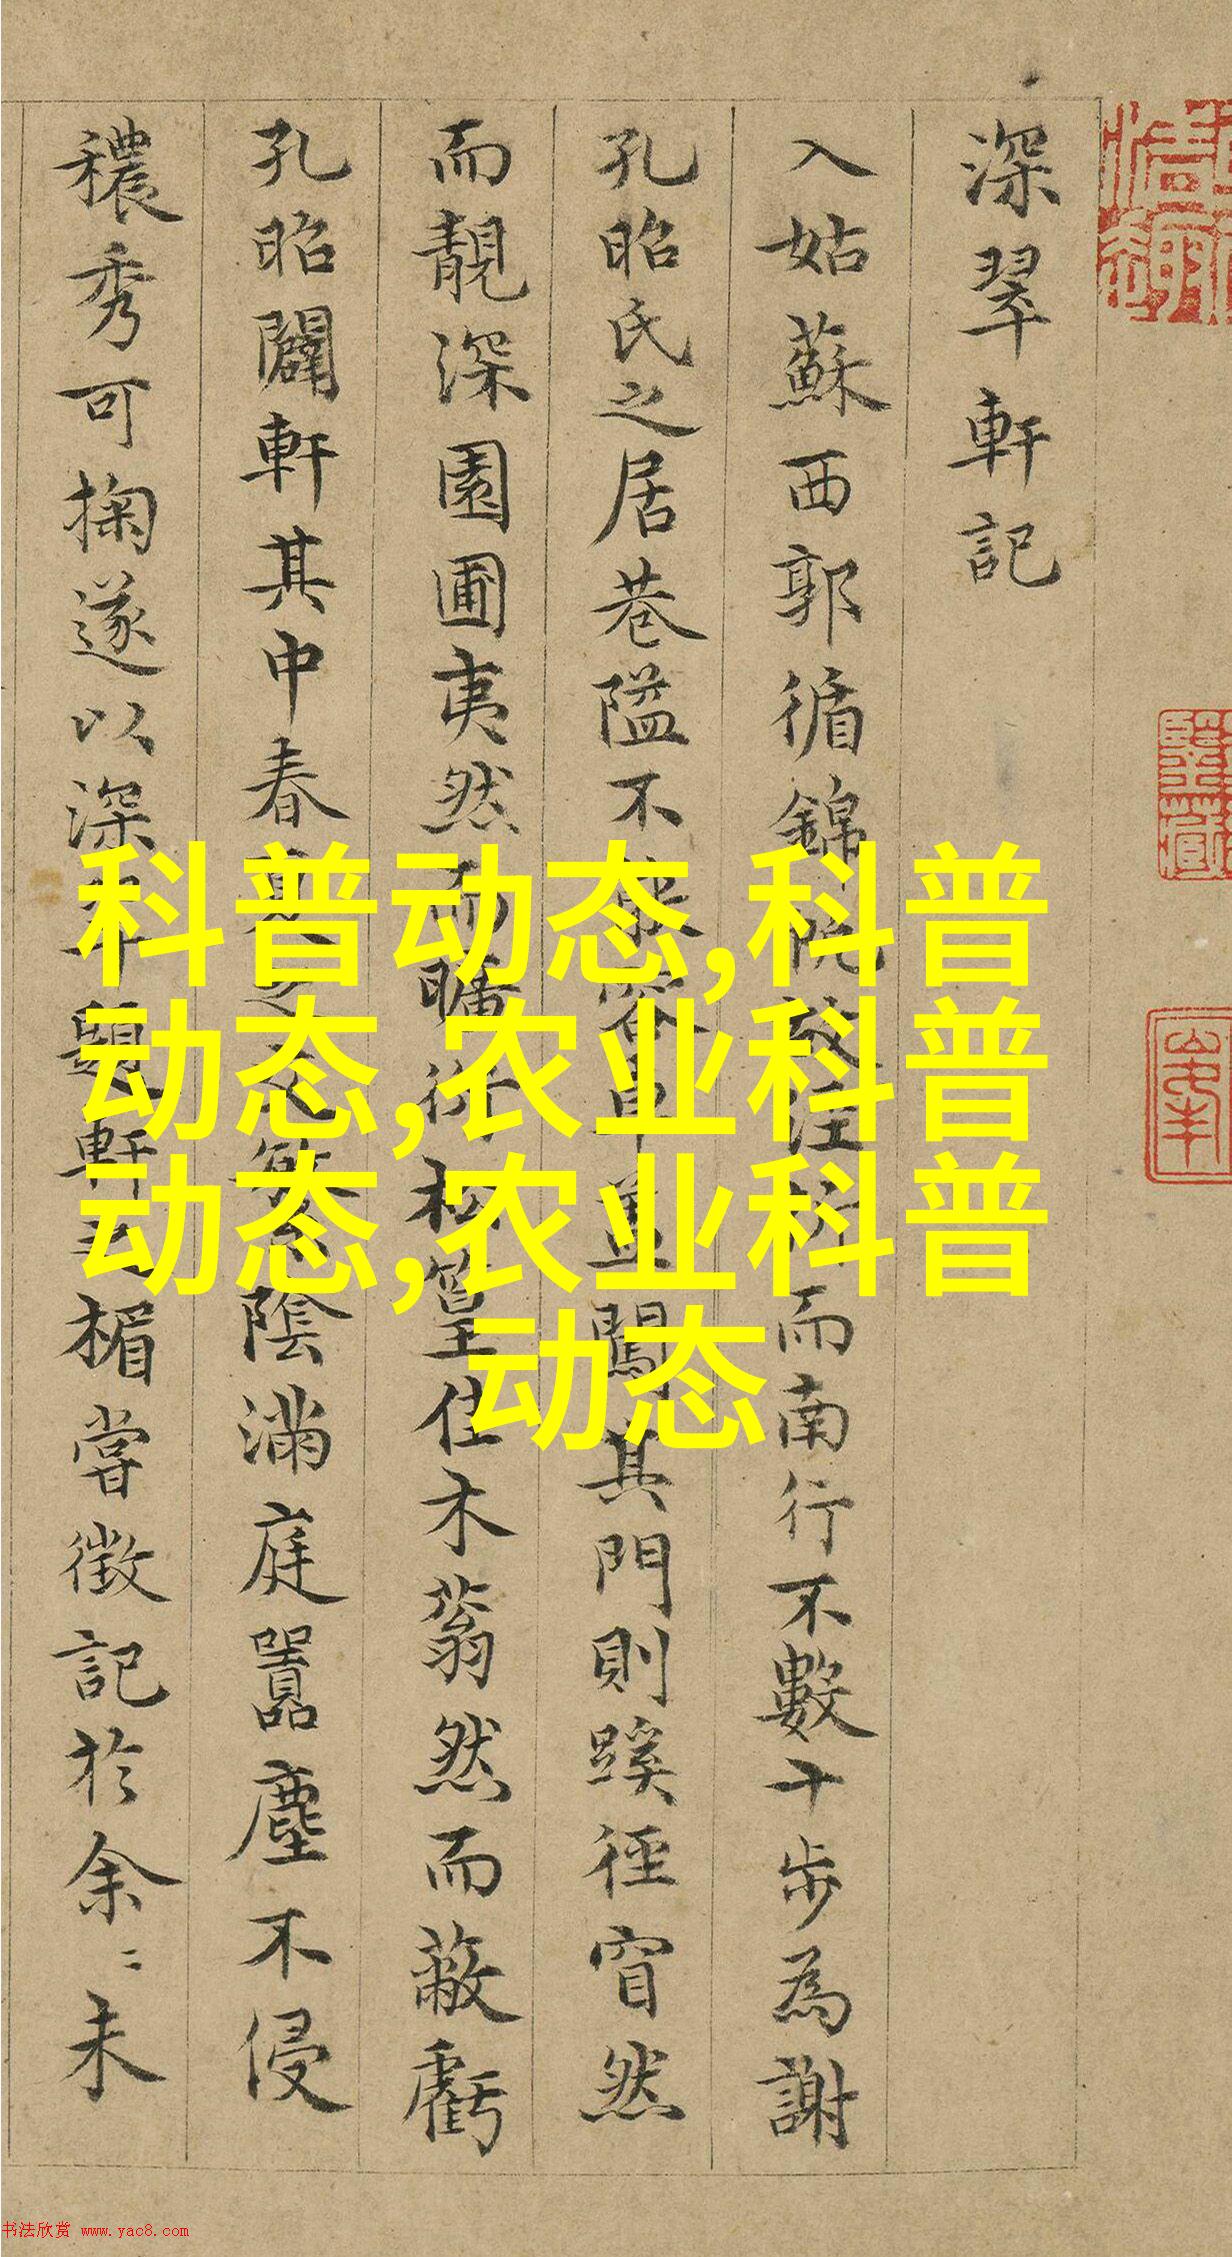 深翠軒記
入姑蘇西郭循錦帆故涇 而南行不數十步為謝
孔昭氏之居巷隘不 容 蓋闖其門則蹊徑窅然
而靚深園圃夷然而曠 松篁佳木蓊然而蔽虧
孔昭闢軒其中春夏之交 陰滿庭囂塵不侵
穠秀可掬遂以深翠題軒之楣嘗徵記於余〻未
科普动态,科普
动态,农业科普
动态,农业科普
动态
书法欣赏 www.yac8.com